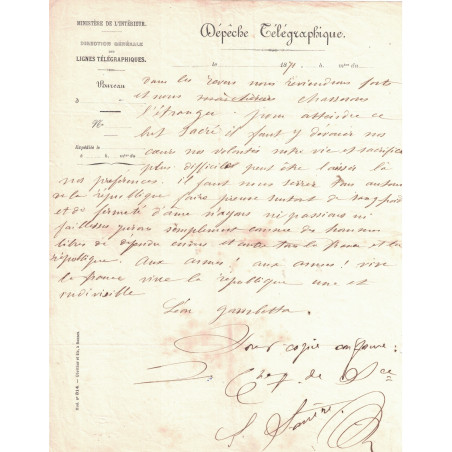 MINISTÈRE DE L'INTÉRIEUR.
DIRECTION GÉNÉRALE
DES
LIGNES TÉLÉGRAPHIQUES.
Dépêche Télégraphique.
le 187
Bureau
N°
Expédié le
dans les revers nous reviendrons forts
et nous chasserons
l'étranger pour atteindre ce
but sacré il faut y dévouer nos
cœurs nos volontés notre vie et sacrifice
plus difficile peut être laisser là
nos préférences. il faut nous serrer tous autour
de la république faire preuve surtout de sang froid
et de fermeté d'ame n'ayons ni passions ni
faiblesses jurons simplement comme des hommes
libres de défendre envers et contre tous la france et la
république. Aux armes! aux armes! vive
la france vive la republique une et
indivisible
Léon gambetta
Pour copie conforme:
de